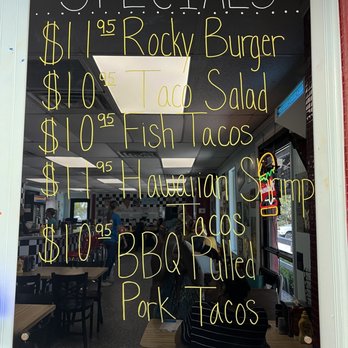 SPECIALS
$11.95 Rocky Burger
$10.95 Taco Salad
$10.95 Fish Tacos
$11.95 Hawaiian Shrimp
Tacos
$10.95 BBQ Pulled
Pork Tacos